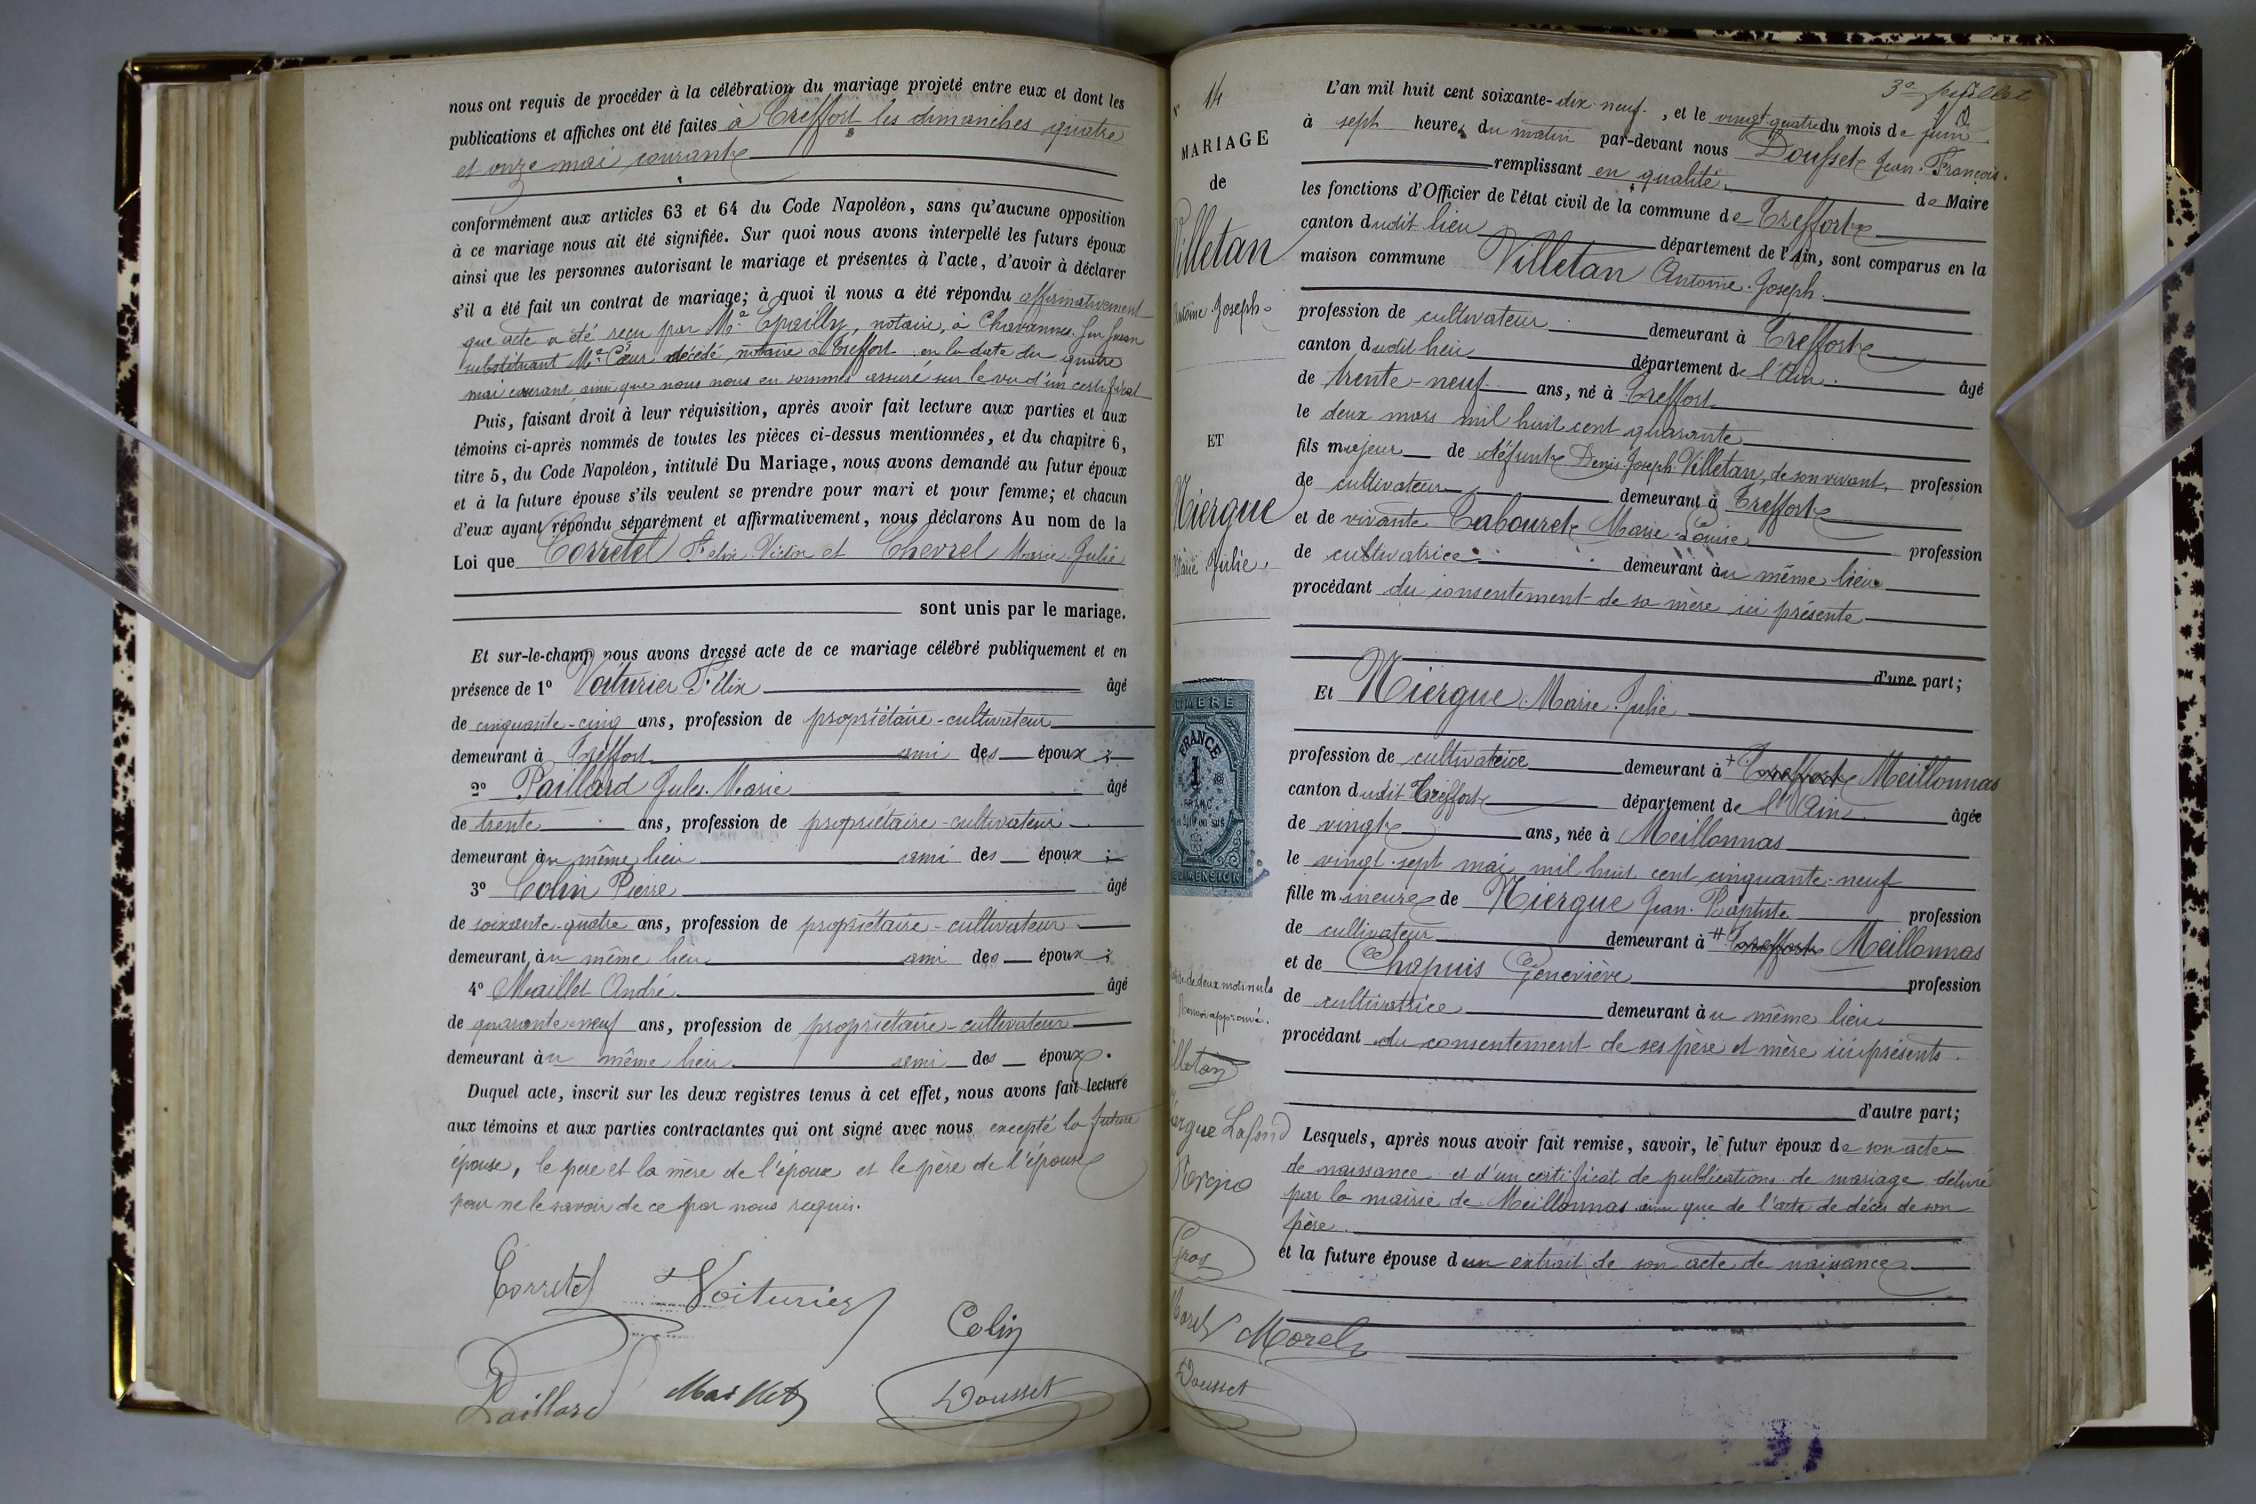 nous ont requis de procéder à la célébration du mariage projeté entre eux et dont les
publications et affiches ont été faites à Treffort les dimanches quatre
et onze mai courant
conformément aux articles 63 et 64 du Code Napoléon, sans qu'aucune opposition
à ce mariage nous ait été signifiée. Sur quoi nous avons interpellé les futurs époux
ainsi que les personnes autorisant le mariage et présentes à l'acte, d'avoir à déclarer
s'il a été fait un contrat de mariage; à quoi il nous a été répondu affirmativement
que acte a été reçu par Me Epailly, notaire, à Chavannes-sur-Suran
substituant Me Cœur décédé, notaire à Treffort en la date du quatre
mai courant ainsi que nous nous en sommes assuré sur le vu d'un certificat
Puis, faisant droit à leur réquisition, après avoir fait lecture aux parties et aux
témoins ci-après nommés de toutes les pièces ci-dessus mentionnées, et du chapitre 6,
titre 5, du Code Napoléon, intitulé Du Mariage, nous avons demandé au futur époux
et à la future épouse s'ils veulent se prendre pour mari et pour femme; et chacun
d'eux ayant répondu séparément et affirmativement, nous déclarons Au nom de la
Loi que Corretel Félix Victin et Chevrel Marie Julie
sont unis par le mariage.
Et sur-le-champ nous avons dressé acte de ce mariage célébré publiquement et en
présence de 1º Voiturier Félix âgé
de cinquante-cinq ans, profession de propriétaire-cultivateur
demeurant à Treffort ami des époux;
2º Paillard Jules Marie âgé
de trente ans, profession de propriétaire-cultivateur
demeurant au même lieu ami des époux;
3º Colin Pierre âgé
de soixante-quatre ans, profession de propriétaire-cultivateur
demeurant au même lieu ami des époux;
4º Maillet André âgé
de quarante-neuf ans, profession de propriétaire-cultivateur
demeurant au même lieu ami des époux.
Duquel acte, inscrit sur les deux registres tenus à cet effet, nous avons fait lecture
aux témoins et aux parties contractantes qui ont signé avec nous excepté la future
épouse, le père et la mère de l'époux et le père de l'épouse
pour ne le savoir de ce par nous requis.
Corretel Voiturier
Colin
Paillard Maillet Dousset
Nº 14
MARIAGE
de
Villetan
Antoine Joseph
ET
Niergue
Marie Julie
FRANCE
1
FRANC
DIMENSION
de deux mots nuls
Renvoi approuvé.
Villetan
Niergue Lafond
Gros
Morel Morel
Dousset
3e feuillet
L'an mil huit cent soixante-dix-neuf, et le vingt quatre du mois de juin
à sept heures du matin par-devant nous Dousset Jean François
remplissant en qualité de Maire
les fonctions d'Officier de l'état civil de la commune de Treffort
canton dudit lieu département de l'Ain, sont comparus en la
maison commune Villetan Antoine Joseph
profession de cultivateur demeurant à Treffort
canton dudit lieu département de l'Ain âgé
de trente-neuf ans, né à Treffort
le deux mars mil huit cent quarante
fils majeur de défunt Denis Joseph Villetan, de son vivant, profession
de cultivateur demeurant à Treffort
et de vivante Tabouret Marie Louise profession
de cultivatrice demeurant au même lieu
procédant du consentement de sa mère ici présente
d'une part;
Et Niergue Marie Julie
profession de cultivatrice demeurant à + Treffort Meillonnas
canton dudit Treffort département de l'Ain âgée
de vingt ans, née à Meillonnas
le vingt-sept mai mil huit cent cinquante-neuf
fille mineure de Niergue Jean Baptiste profession
de cultivateur demeurant à # Treffort Meillonnas
et de Chapuis Geneviève profession
de cultivatrice demeurant au même lieu
procédant du consentement de ses père et mère ici présents
d'autre part;
Lesquels, après nous avoir fait remise, savoir, le futur époux de son acte
de naissance et d'un certificat de publications de mariage délivré
par la mairie de Meillonnas ainsi que de l'acte de décès de son
père
et la future épouse d'un extrait de son acte de naissance